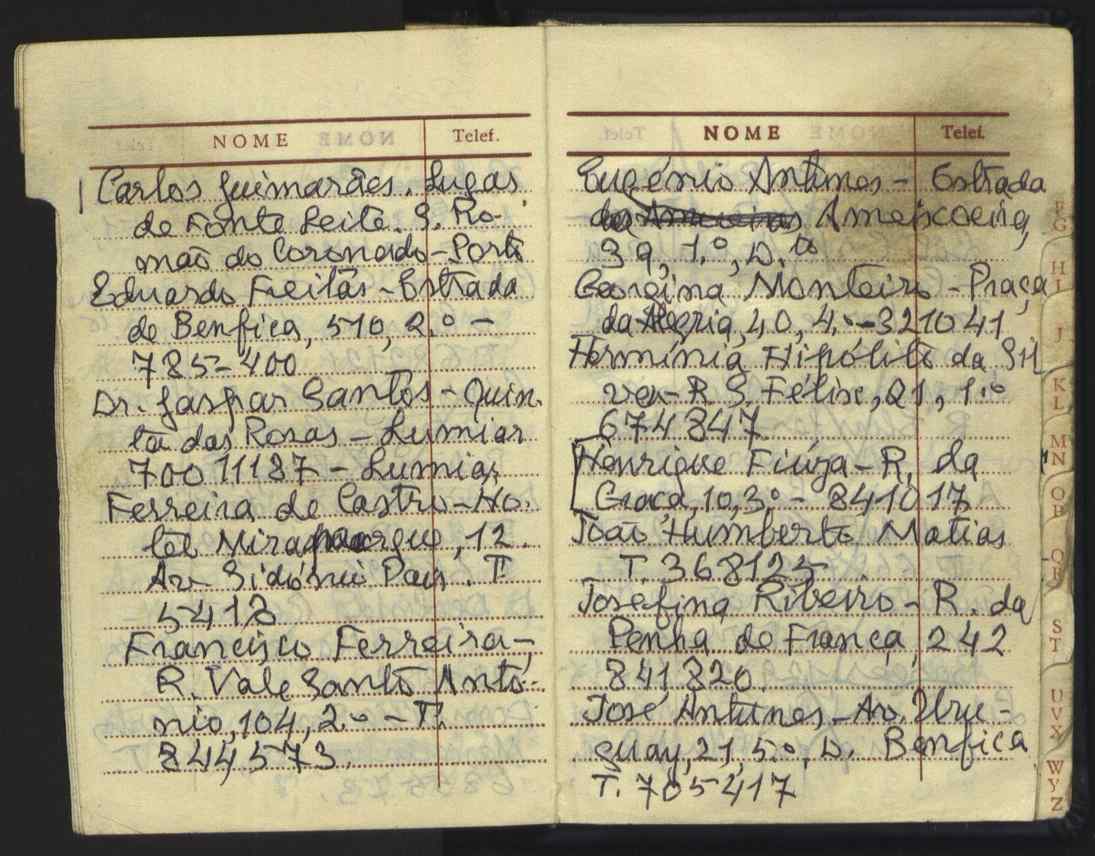 NOME Telef.
Carlos Guimarães. Lugar
de Fonte Leite. S. Ro-
mão do Coronado - Porto
Eduardo Freitas - Estrada
de Benfica, 510, 2.º -
785-400
Dr. Gaspar Santos - Quin-
ta das Rosas - Lumiar
70011187 - Lumiar
Ferreira de Castro - Ho-
tel , 12.
Av. Sidónio Pais. T.
5418
Francisco Ferreira -
R. Vale Santo Antó-
nio, 104, 2.º - T.
844573.
NOME Telef.
Eugénio Antunes - Estrada
da Ameixoeira,
39, 1.º, D.to
Georgina Monteiro - Praça
da Alegria, 40, 4.º - 321041
Hermínia Hipólito da Sil
ver - R. S. Félix, 21, 1.º
674847
Henrique Fiúza - R. da
Graça, 10, 3.º - 841017
João Humberto Matias
T. 368125
Josefina Ribeiro - R. da
Penha de França, 242
841820.
José Antunes - Av. Uru-
guay, 21, 5.º, D. Benfica
T. 705417
F
G
H
I
J
K
L
M
N
O
P
Q
R
S
T
U
V
X
W
Y
Z